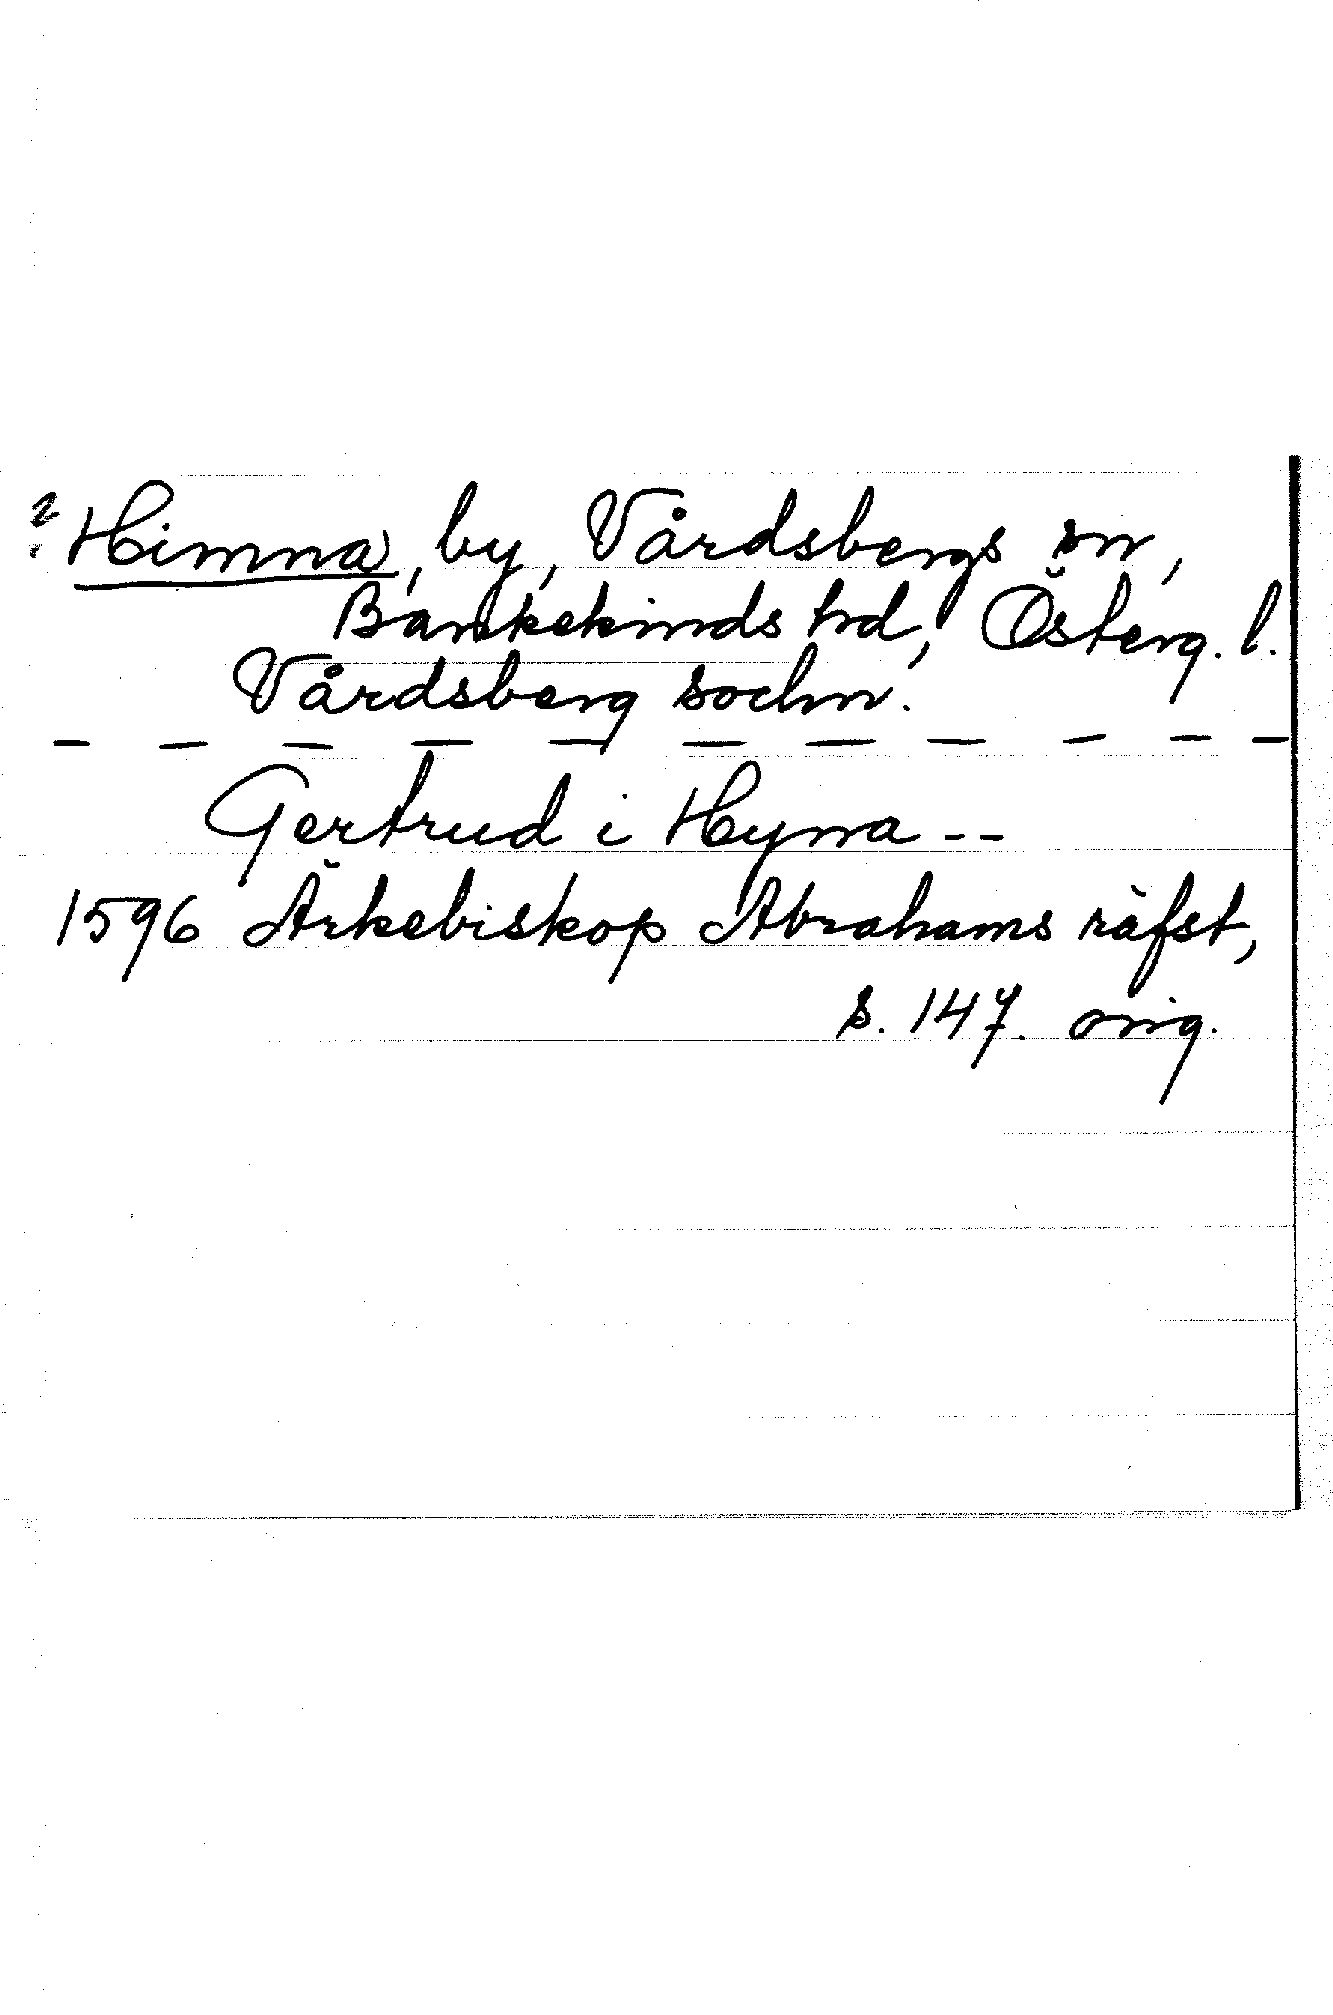 ? Himna, by, Vårdsbergs sn,
Bankekinds hd, Österg. l.
Vårdsberg sochn.
— — — — — — — — — — —
Gertrud i Hyma --
1596 Ärkebiskop Abrahams räfst,
s. 147. orig.